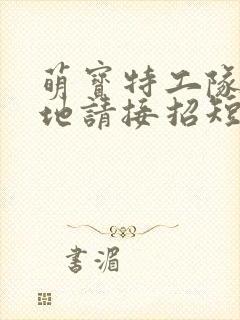 萌寶特工隊
地請接招短
書湄